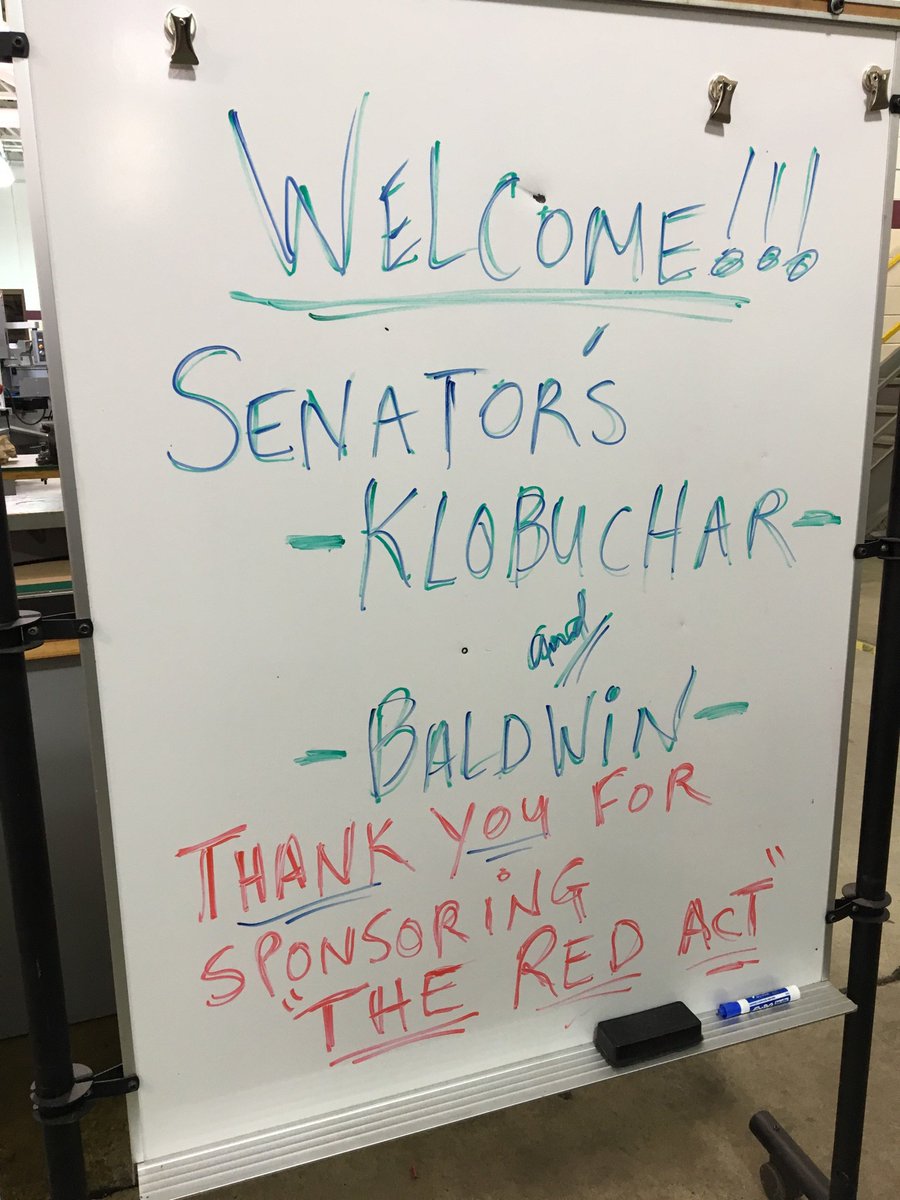 WELCOME!!!
SENATOR'S
-KLOBUCHAR-
and
-BALDWIN-
THANK YOU FOR
SPONSORING
"THE RED ACT"